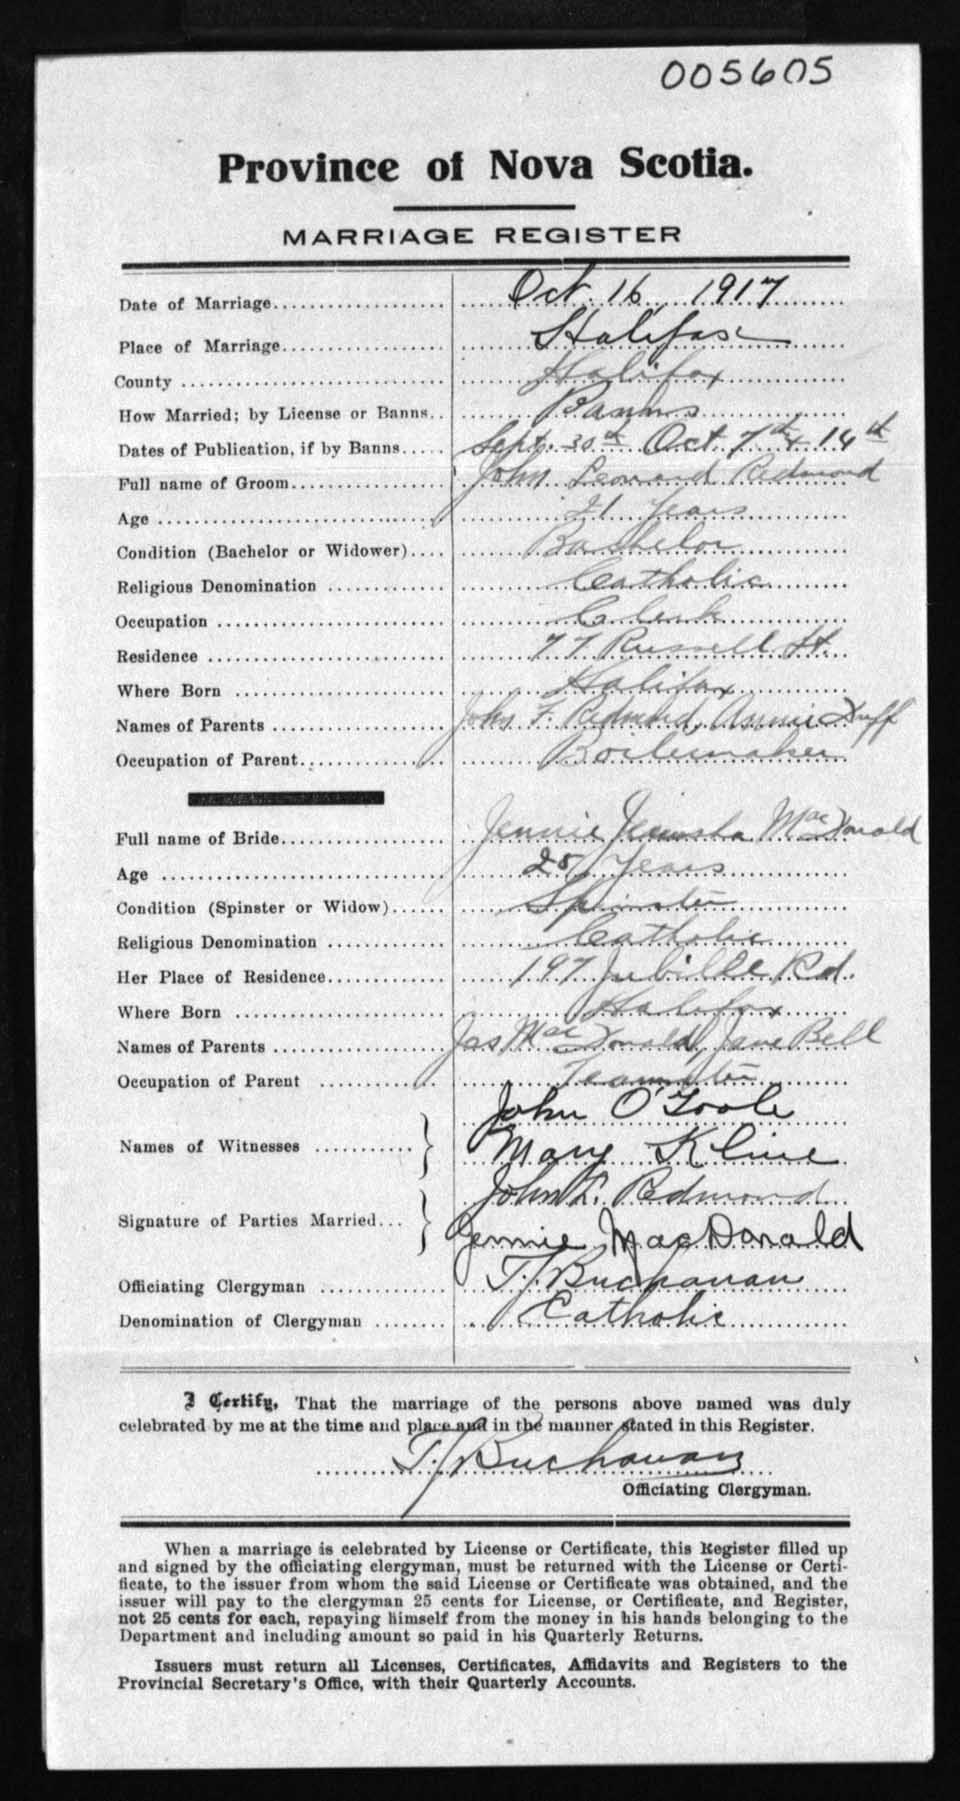 005605
Province of Nova Scotia.
MARRIAGE REGISTER
Date of Marriage.................... Oct. 16, 1917
Place of Marriage................... Halifax
County .............................. Halifax
How Married; by License or Banns.. Banns
Dates of Publication, if by Banns..... Sept. 30th Oct. 7th & 14th
Full name of Groom.................. John Leonard Redmond
Age ................................. 21 Years
Condition (Bachelor or Widower).... Bachelor
Religious Denomination .............. Catholic
Occupation ........................... Clerk
Residence ............................ 77 Russell St.
Where Born ......................... Halifax
Names of Parents ..................... John F. Redmond, Annie Duff
Occupation of Parent................. Boilermaker
Full name of Bride................... Jennie MacDonald
Age ................................. 25 Years
Condition (Spinster or Widow)...... Spinster
Religious Denomination .............. Catholic
Her Place of Residence.............. 197 Jubilee Rd.
Where Born ......................... Halifax
Names of Parents .................... Jas MacDonald, Jane Bell
Occupation of Parent ............... Teamster
John O'Toole
Names of Witnesses ............ Mary Kline
John L. Redmond
Signature of Parties Married... Jennie MacDonald
Officiating Clergyman ............... T. J. Buchanan
Denomination of Clergyman ........ Catholic
I Certify, That the marriage of the persons above named was duly
celebrated by me at the time and place and in the manner stated in this Register.
T. J. Buchanan
Officiating Clergyman.
When a marriage is celebrated by License or Certificate, this Register filled up
and signed by the officiating clergyman, must be returned with the License or Certi-
ficate, to the issuer from whom the said License or Certificate was obtained, and the
issuer will pay to the clergyman 25 cents for License, or Certificate, and Register,
not 25 cents for each, repaying himself from the money in his hands belonging to the
Department and including amount so paid in his Quarterly Returns.
Issuers must return all Licenses, Certificates, Affidavits and Registers to the
Provincial Secretary's Office, with their Quarterly Accounts.